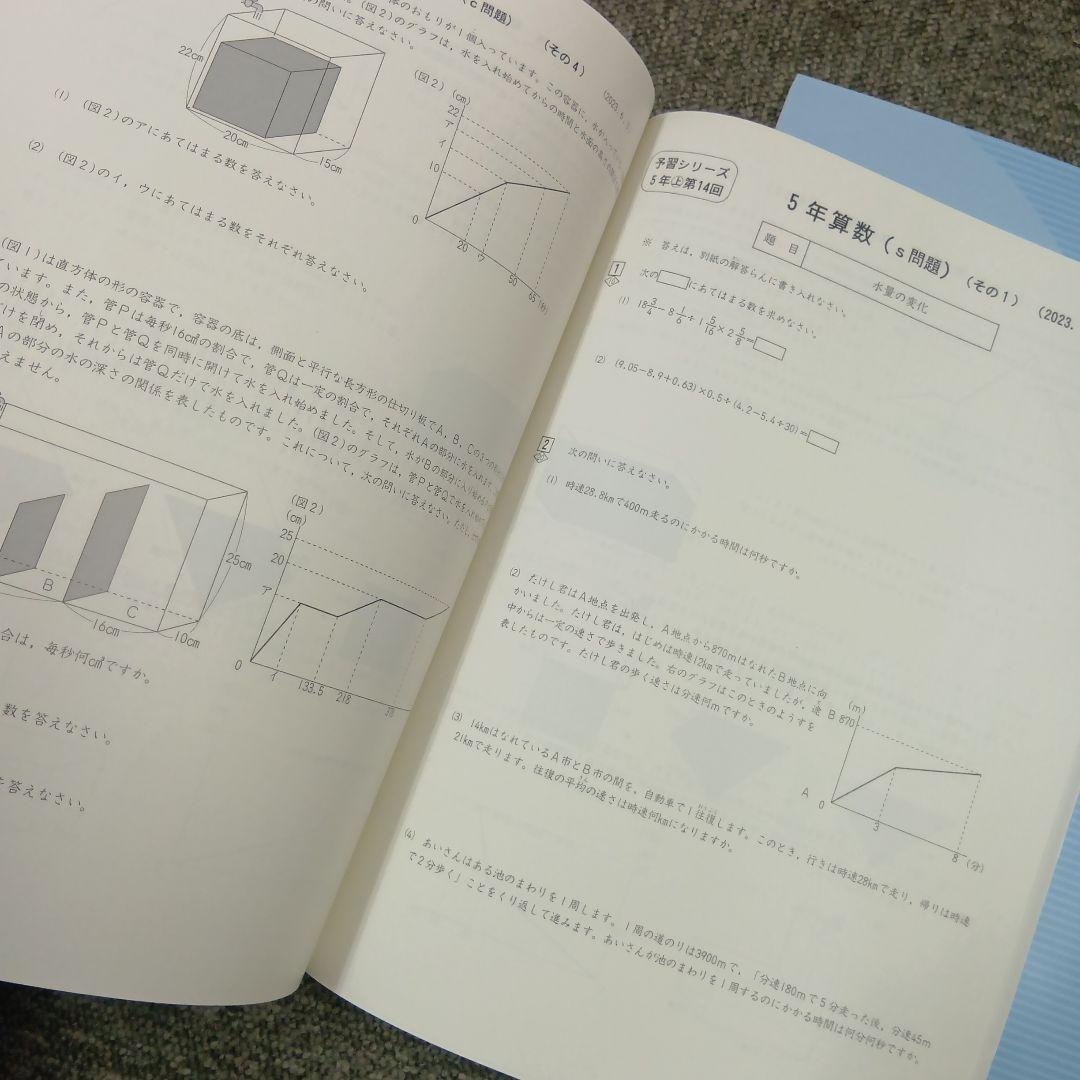 （c問題）
（その4）
22cm
20cm
15cm
（図2）
(cm)
22
ア
イ
10
0
20
ウ
50
65
(秒)
(1) （図2）のアにあてはまる数を答えなさい。
(2) （図2）のイ，ウにあてはまる数をそれぞれ答えなさい。
（図1）は直方体の形の容器で，容器の底は，側面と平行な長方形の仕切り板でA，B，C
ています。また，管Pは毎秒16cm³の割合で，管Qは一定の割合で，それぞれAの部分に水を入れます。
の状態から，管Pと管Qを同時に開けて水を入れ始めました。そして，水がBの部分に入り始める
だけを閉め，それからは管Qだけで水を入れました。（図2）のグラフは，管Pと管Qで水を入れ始めて
Aの部分の水の深さの関係を表したものです。これについて，次の問いに答えなさい。
えません。
B
C
25cm
16cm
10cm
（図2）
(cm)
25
20
ア
0
イ
133.5
218
合は，毎秒何cm³ですか。
数を答えなさい。
を答えなさい。
予習シリーズ
5年㊤第14回
5年算数（s問題）
（その1）
(2023.
題 目
水量の変化
※ 答えは，別紙の解答らんに書き入れなさい。
1
次の□にあてはまる数を求めなさい。
(1) 18 3/4－8 1/6÷1 5/16×2 5/8＝□
(2) (9.05－8.9＋0.63)×0.5÷(4.2－5.4÷30)＝□
2
次の問いに答えなさい。
(1) 時速28.8kmで400m走るのにかかる時間は何秒ですか。
(2) たけし君はA地点を出発し，A地点から870mはなれたB地点に向
かいました。たけし君は，はじめは時速12kmで走っていましたが，途
中からは一定の速さで歩きました。右のグラフはこのときのようすを
表したものです。たけし君の歩く速さは分速何mですか。
(m)
B 870
A 0
3
8
(分)
(3) 14kmはなれているA市とB市の間を，自動車で1往復します。このとき，行きは時速28kmで走り，帰りは時速
21kmで走ります。往復の平均の速さは時速何kmになりますか。
(4) あいさんはある池のまわりを1周します。1周の道のりは3900mで，「分速180mで5分走った後，分速45m
で2分歩く」ことをくり返して進みます。あいさんが池のまわりを1周するのにかかる時間は何分何秒ですか。